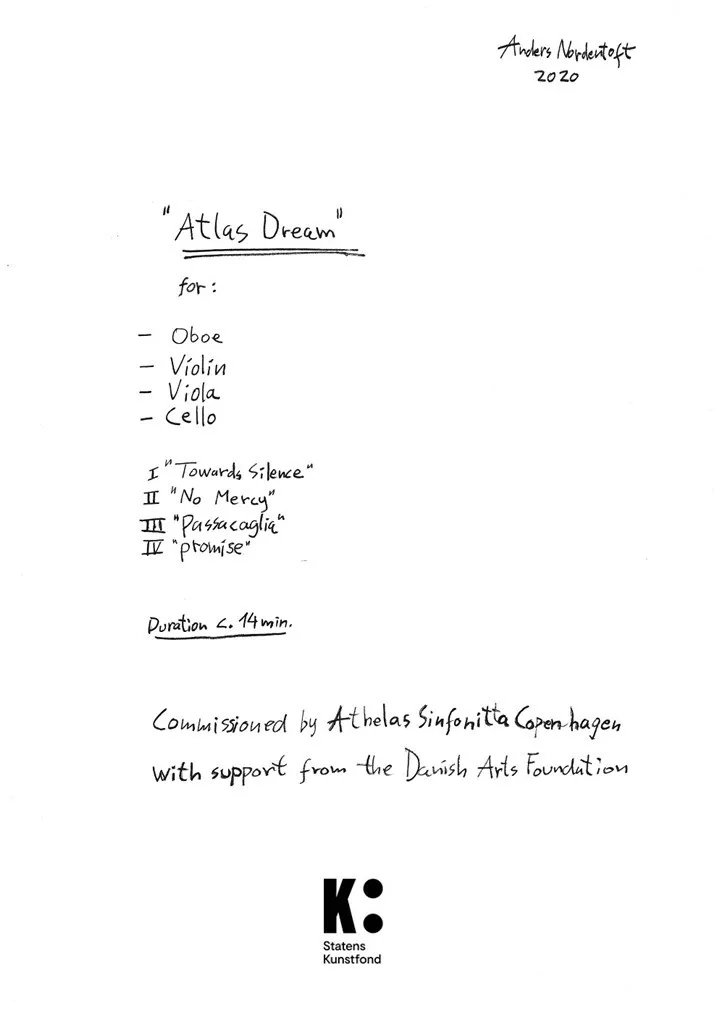 Anders Nordentoft
2020
"Atlas Dream"
for:
– Oboe
– Violin
– Viola
– Cello
I "Towards Silence"
II "No Mercy"
III "Passacaglia"
IV "promise"
Duration c. 14 min.
Commissioned by Athelas Sinfonitta Copenhagen
with support from the Danish Arts Foundation
K:
Statens
Kunstfond